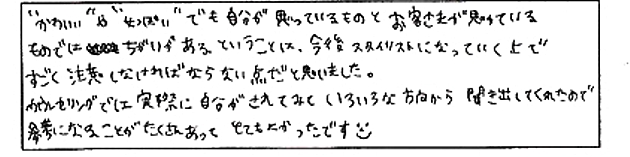 "かわいい"や"大人っぽい"でも自分が思っているものとお客さまが思っている
ものではちがいがあるということは、今後スタイリストになっていく上で
すごく注意しなければならない点だと思いました。
カウンセリングでは実際に自分がされてみていろいろな方向から聞き出してくれたので
参考になることがたくさんあってとてもよかったです